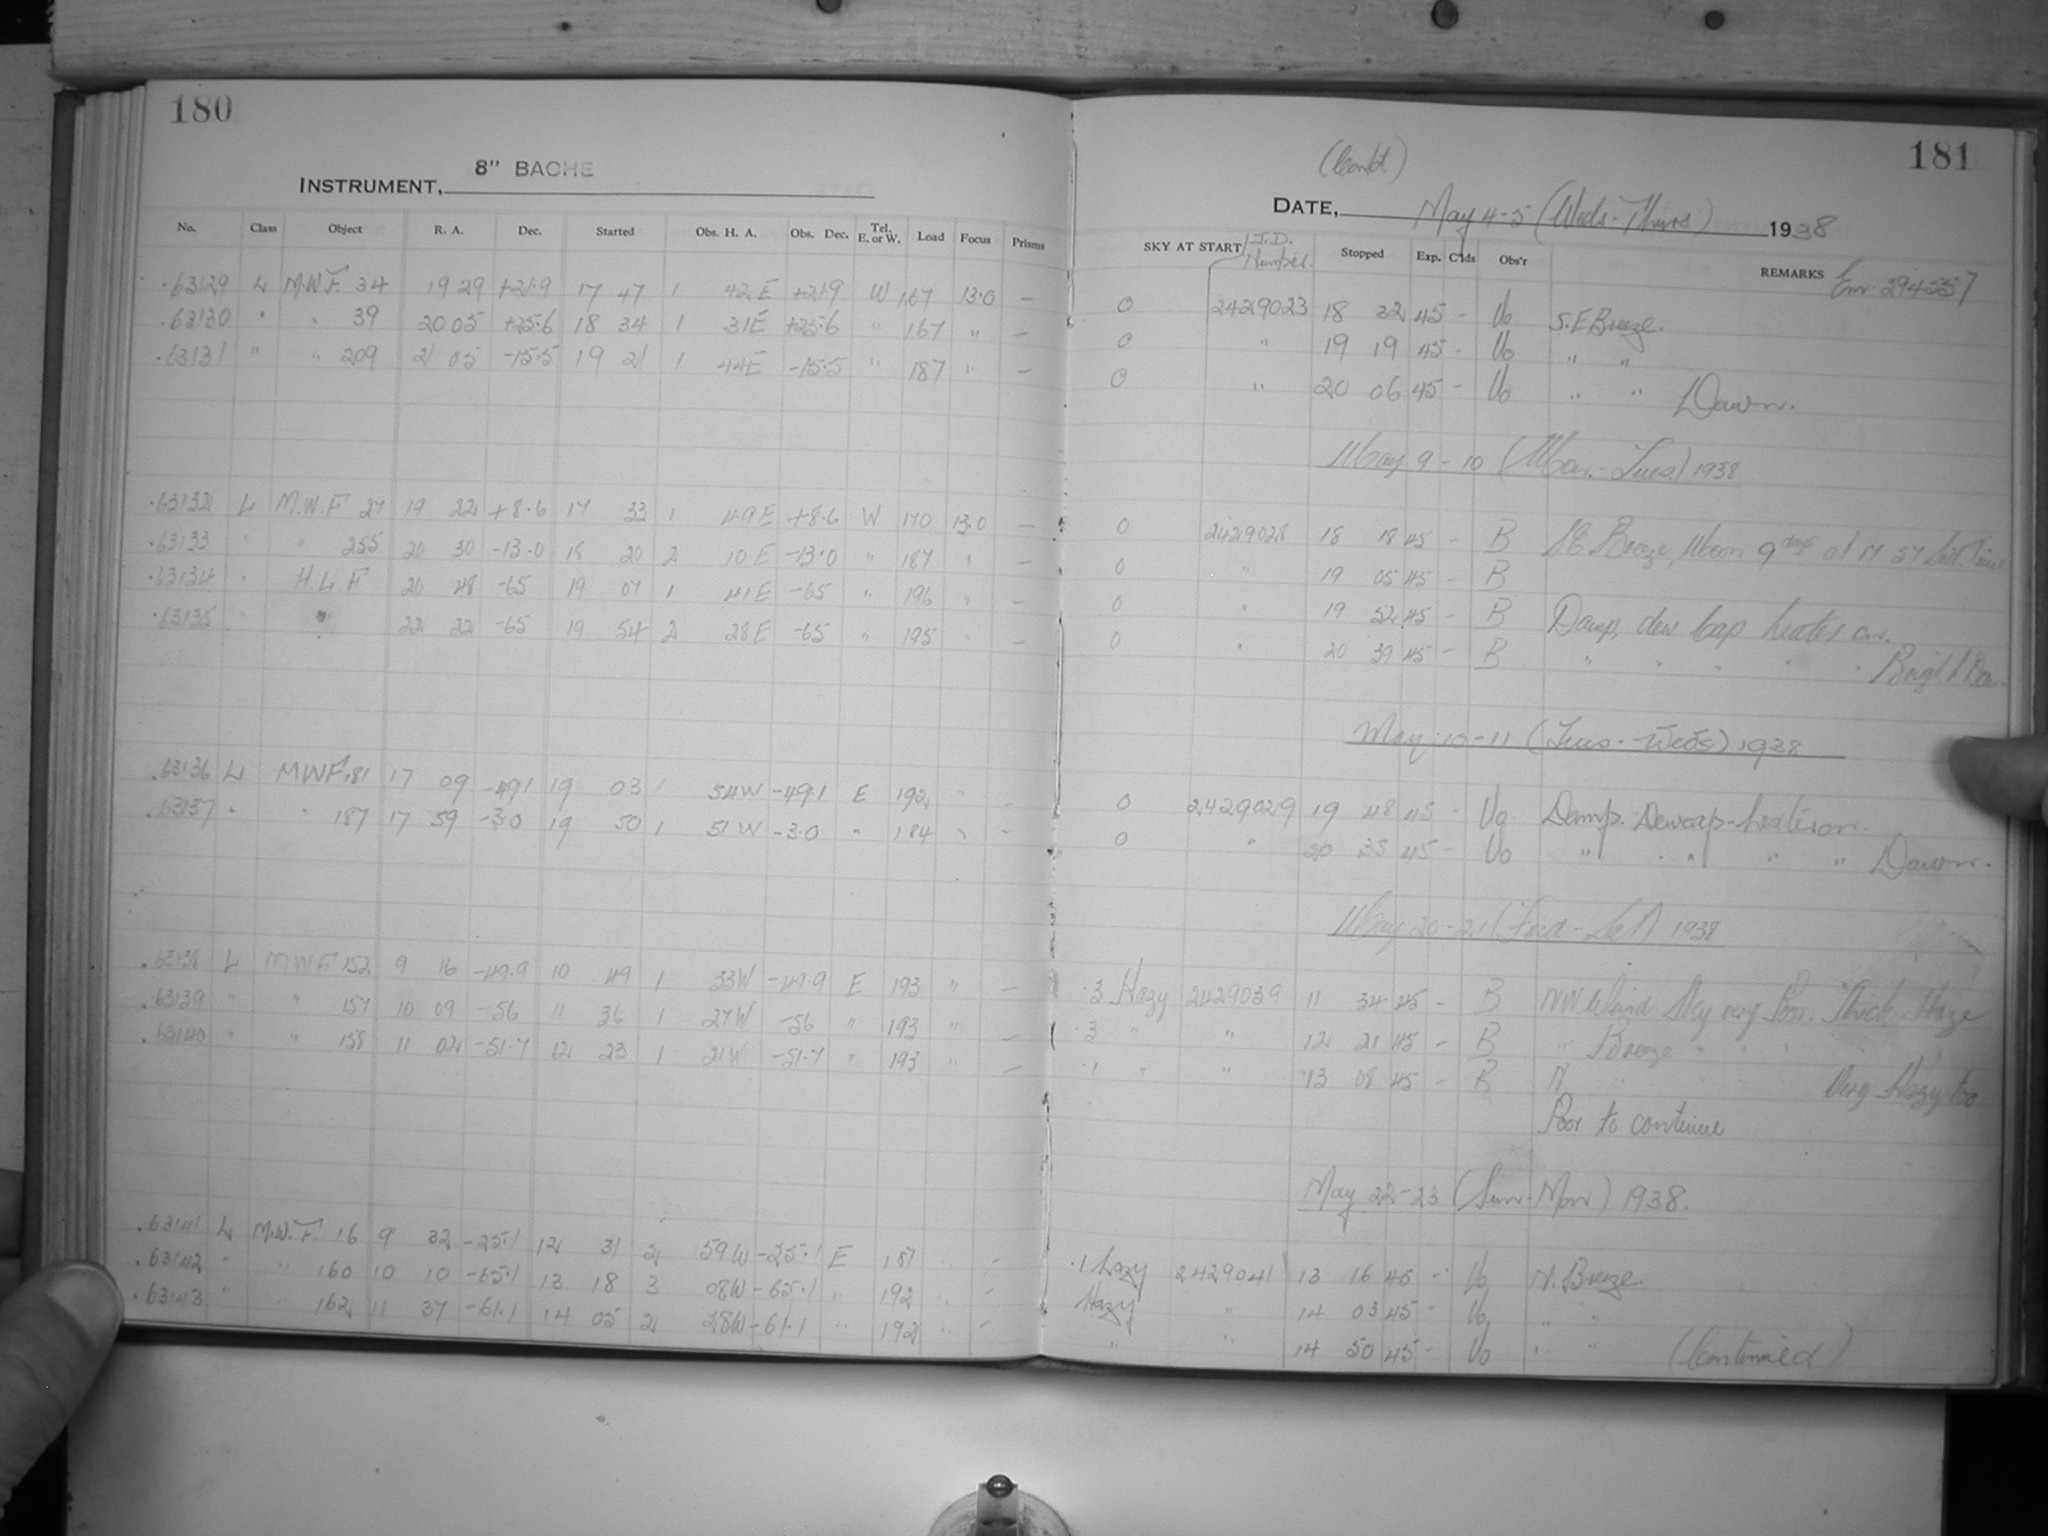 180
8" BACHE
INSTRUMENT,
No. Class Object R. A. Dec. Started Obs. H. A. Obs. Dec. Tel. E. or W. Load Focus Prisms
.63129 L M.W.F. 34 19 29 +21.9 17 47 1 42 E +21.9 W 167 13.0 —
.63130 " " 39 20 05 +25.6 18 34 1 31 E +25.6 " 167 " —
.63131 " " 209 21 05 -15.5 19 21 1 44 E -15.5 " 187 " —
.63132 L M.W.F 27 19 22 +8.6 17 33 1 49 E +8.6 W 170 13.0 —
.63133 " " 255 20 30 -13.0 18 20 2 10 E -13.0 " 187 " —
.63134 " H.L.F 20 48 -65 19 07 1 41 E -65 " 196 " —
.63135 " " 22 22 -65 19 54 2 28 E -65 " 195 " —
.63136 L MWF 181 17 09 -49.1 19 03 1 54 W -49.1 E 192 " —
.63137 " " 187 17 59 -3.0 19 50 1 51 W -3.0 " 184 " —
.63138 L MWF 152 9 16 -49.9 10 49 1 33 W -49.9 E 193 " —
.63139 " " 157 10 09 -56 11 36 1 27 W -56 " 193 " —
.63140 " " 158 11 02 -51.7 12 23 1 21 W -51.7 " 193 " —
.63141 L M.W.F. 16 9 32 -25.1 12 31 2 59 W -25.1 E 187 " —
.63142 " " 160 10 10 -65.1 13 18 3 08 W -65.1 " 192 " —
.63143 " " 162 11 37 -61.1 14 05 2 28 W -61.1 " 192 " —
181
(Contd)
DATE, May 4-5 (Weds-Thurs) 1938
SKY AT START J.D. Number. Stopped Exp. C'lds Obs'r REMARKS
0 2429023 18 32 45 - Vo S.E Breeze.
0 " 19 19 45 - Vo " "
0 " 20 06 45 - Vo " " Dawn.
May 9-10 (Mon.-Tues.) 1938
0 2429028 18 18 45 - B SE Breeze, Moon 9 at 17 57 Sid. Time
0 " 19 05 45 - B
0 " 19 52 45 - B Damp, dew cap heater on.
0 " 20 39 45 - B " " " " " Bright
May 10-11 (Tues-Weds) 1938
0 2429029 19 48 45 - Vo Damp. Dewcap-heater on.
0 " 20 35 45 - Vo " " " " Dawn.
May 20-21 (Frid-Sat) 1938
.3 Hazy 2429039 11 34 45 - B NW Wind Sky very Poor. Thick Haze
.3 " " 12 21 45 - B " Breeze " " " "
.1 " " 13 08 45 - B N " Very Hazy too
Poor to continue
May 22-23 (Sun-Mon) 1938.
.1 hazy 2429041 13 16 45 - Vo N. Breeze.
Hazy " 14 03 45 - Vo " "
" " 14 50 45 - Vo " " (Continued)